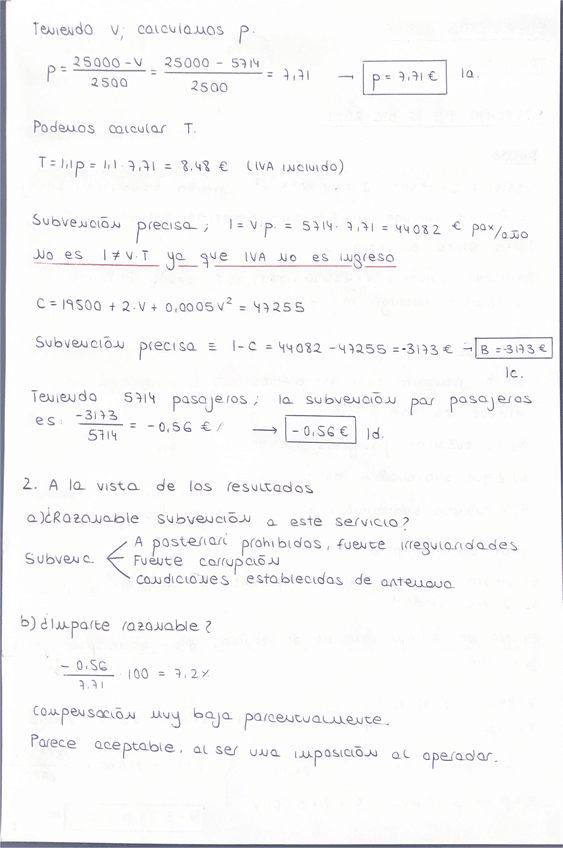 Teniendo V; calculamos p.
p = 25000-V / 2500 = 25000 - 5714 / 2500 = 7,71 → p = 7,71 € 1a.
Podemos calcular T.
T = 1,1p = 1,1 · 7,71 = 8,48 € (IVA incluido)
Subvención precisa; I = V·p. = 5714 · 7,71 = 44082 € pax/año
No es I ≠ V·T ya que IVA no es ingreso
C = 19500 + 2·V + 0,0005V² = 47255
Subvención precisa ≡ I-C = 44082 - 47255 = -3173 € → B = -3173 €
1c.
Teniendo 5714 pasajeros; la subvención por pasajeros
es: -3173 / 5714 = -0,56 € → -0,56 € 1d.
2. A la vista de los resultados
a) ¿Razonable subvención a este servicio?
A posteriori prohibidas, fuente irregularidades
Subvenc Fuente corrupción
condiciones establecidas de antemano
b) ¿Importe razonable?
-0,56 / 7,71 · 100 = 7,2%
Compensación muy baja porcentualmente.
Parece aceptable, al ser una imposición al operador.